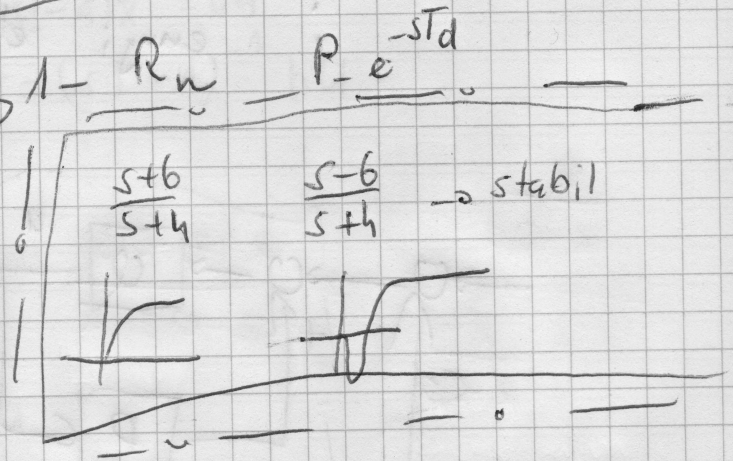 1 - Rn P_ e^-sTd
s+6/s+4 s-6/s+4 → stabil